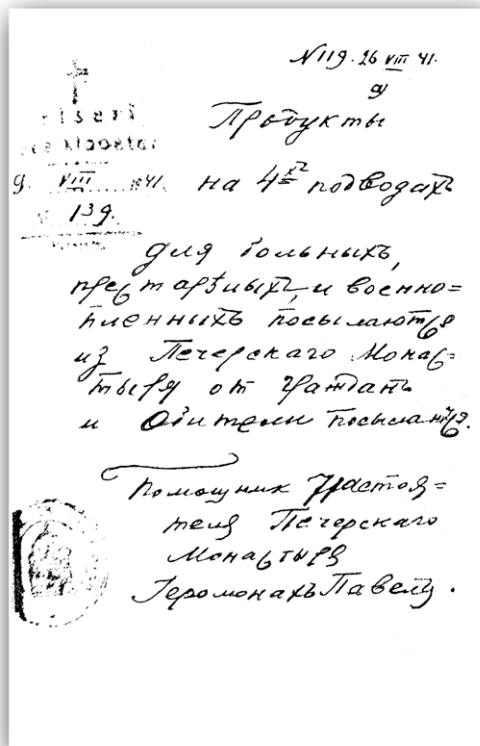 N 119. 26 VIII 41.
Продукты
на 4хъ подводахъ
9. VIII 1941
139.
для больныхъ,
престарѣлыхъ, и военно=
плѣнныхъ посылаются
из Печерскаго Монас=
тыря от Граждан
и Обители посылаются.
Помощник Настоя=
теля Печерскаго
Монастыря
Iеромонахъ Павелъ.